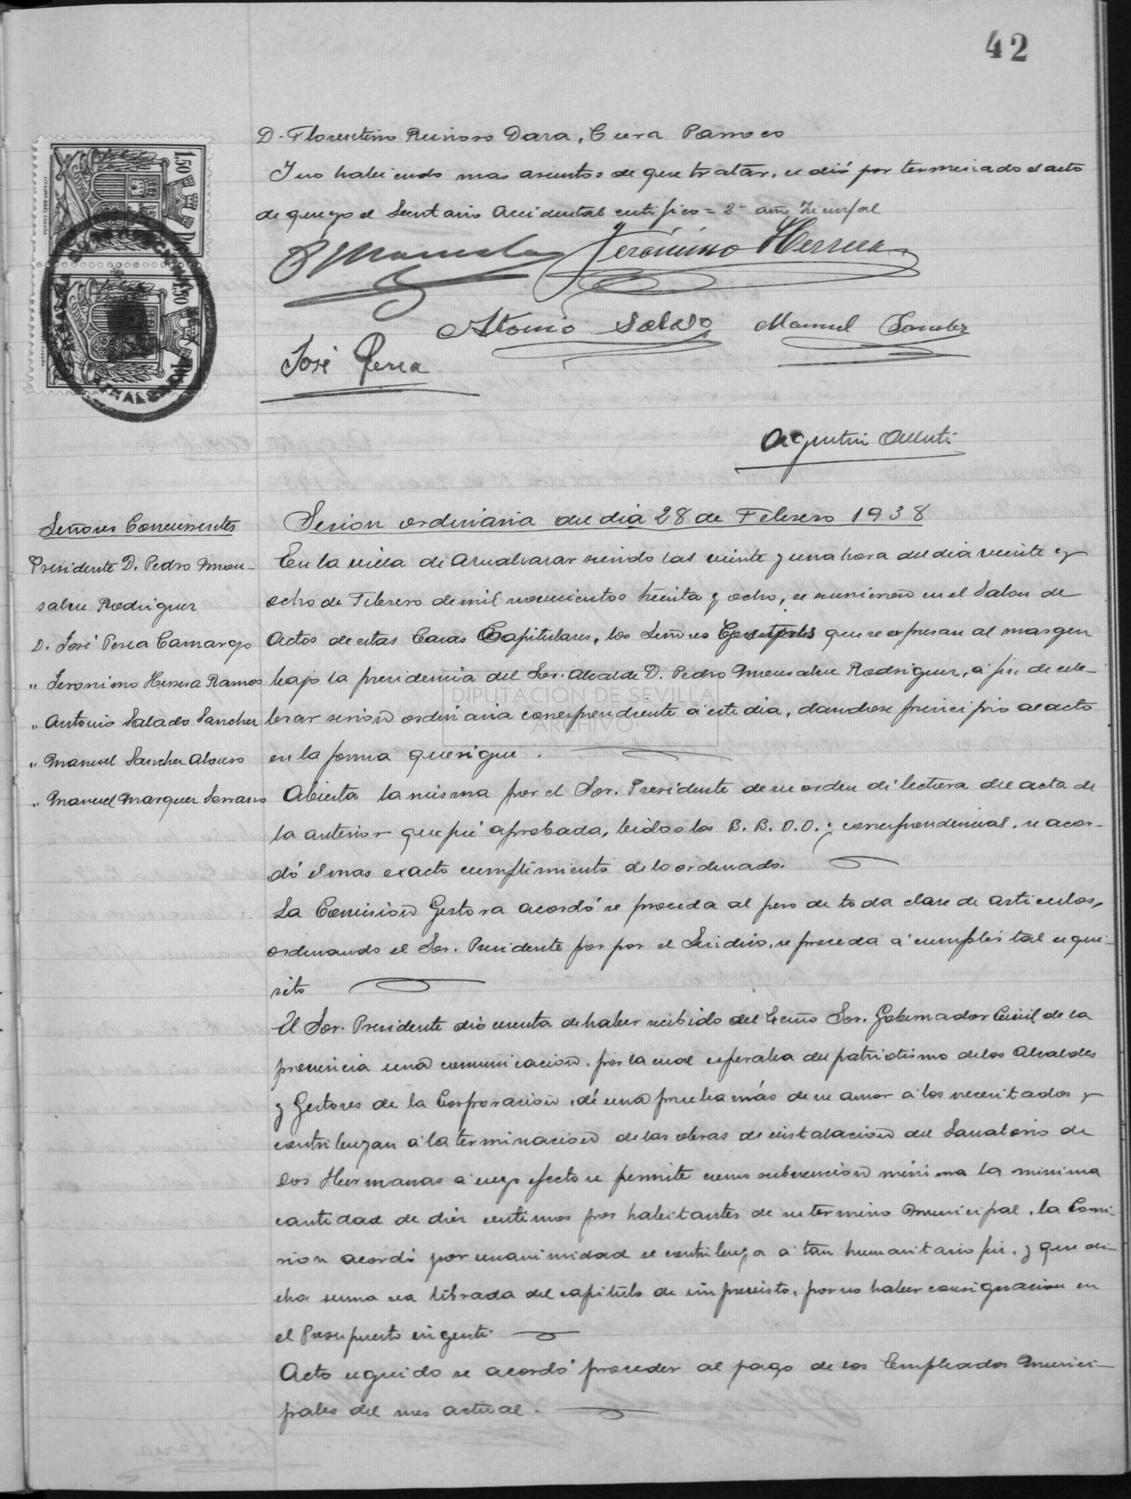 42
D. Florentino Reinoso Dara, Cura Parroco
Y no habiendo mas asuntos de que tratar, se dió por terminado el acto
de que yo el Secretario Accidental certifico = 2º año Triunfal
Jeronimo Herrera
Antonio Salado Manuel Sanchez
José Perea
Agustin
1.50
1.50
Señores Concurrentes
Presidente D. Pedro Mon-
salve Rodriguez
D. José Perea Camargo
" Jeronimo Herrera Ramos
" Antonio Salado Sanchez
" Manuel Sanchez Alonso
" Manuel Marquez Serrano
Sesion ordinaria del dia 28 de Febrero 1938
En la villa de Aznalcazar siendo las veinte y una hora del dia veinte y
ocho de Febrero de mil novecientos treinta y ocho, se reunieron en el Salon de
Actos de estas Casas Capitulares, los Señores Gestores que se expresan al margen
bajo la presidencia del Sor. Alcalde D. Pedro Monsalve Rodriguez, á fin de cele-
brar sesion ordinaria correspondiente á este dia, dandose principio al acto
en la forma que sigue.
Abierta la misma por el Sor. Presidente de su orden di lectura del acta de
la anterior que fué aprobada, leidos los B. B. O.O. y correspondencias, se acor-
dó el mas exacto cumplimiento de lo ordenado.
La Comision Gestora acordó se proceda al peso de toda clase de articulos,
ordenando el Sor. Presidente por por el se proceda á cumplir tal requi-
sito
El Sor. Presidente dió cuenta de haber recibido del Excmo Sor. Gobernador Civil de la
provincia una comunicacion, por la cual esperaba del patriotismo de los Alcaldes
y Gestores de la Corporacion, dé una prueba más de su amor á los necesitados y
contribuyan á la terminacion de las obras de instalacion del Sanatorio de
Dos Hermanas á cuyo efecto se permite como subvencion minima la minima
cantidad de diez centimos por habitantes de su termino Municipal, la Comi-
sion acordó por unanimidad se contribuya á tan humanitario fin, y que di-
cha suma sea librada del capitulo de imprevisto, por no haber consignacion en
el Presupuesto vigente.
Acto seguido se acordó proceder al pago de los Empleados Munici-
pales del mes actual.
DIPUTACIÓN DE SEVILLA
ARCHIVO